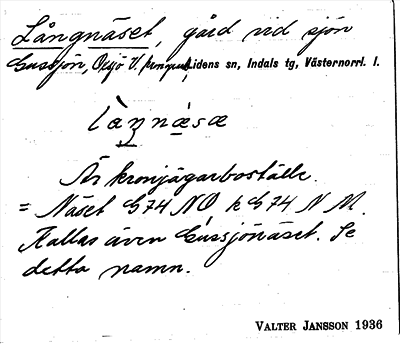 Långnäset, gård vid sjön
Gussjön, Oxsjö V. kronopark, Lidens sn, Indals tg, Västernorrl. l.
làŋnæ̀sæ
Är kronjägarboställe.
= Näset G74 NO, k G74 N M.
Kallas även Gussjönäset. Se
detta namn.
VALTER JANSSON 1936